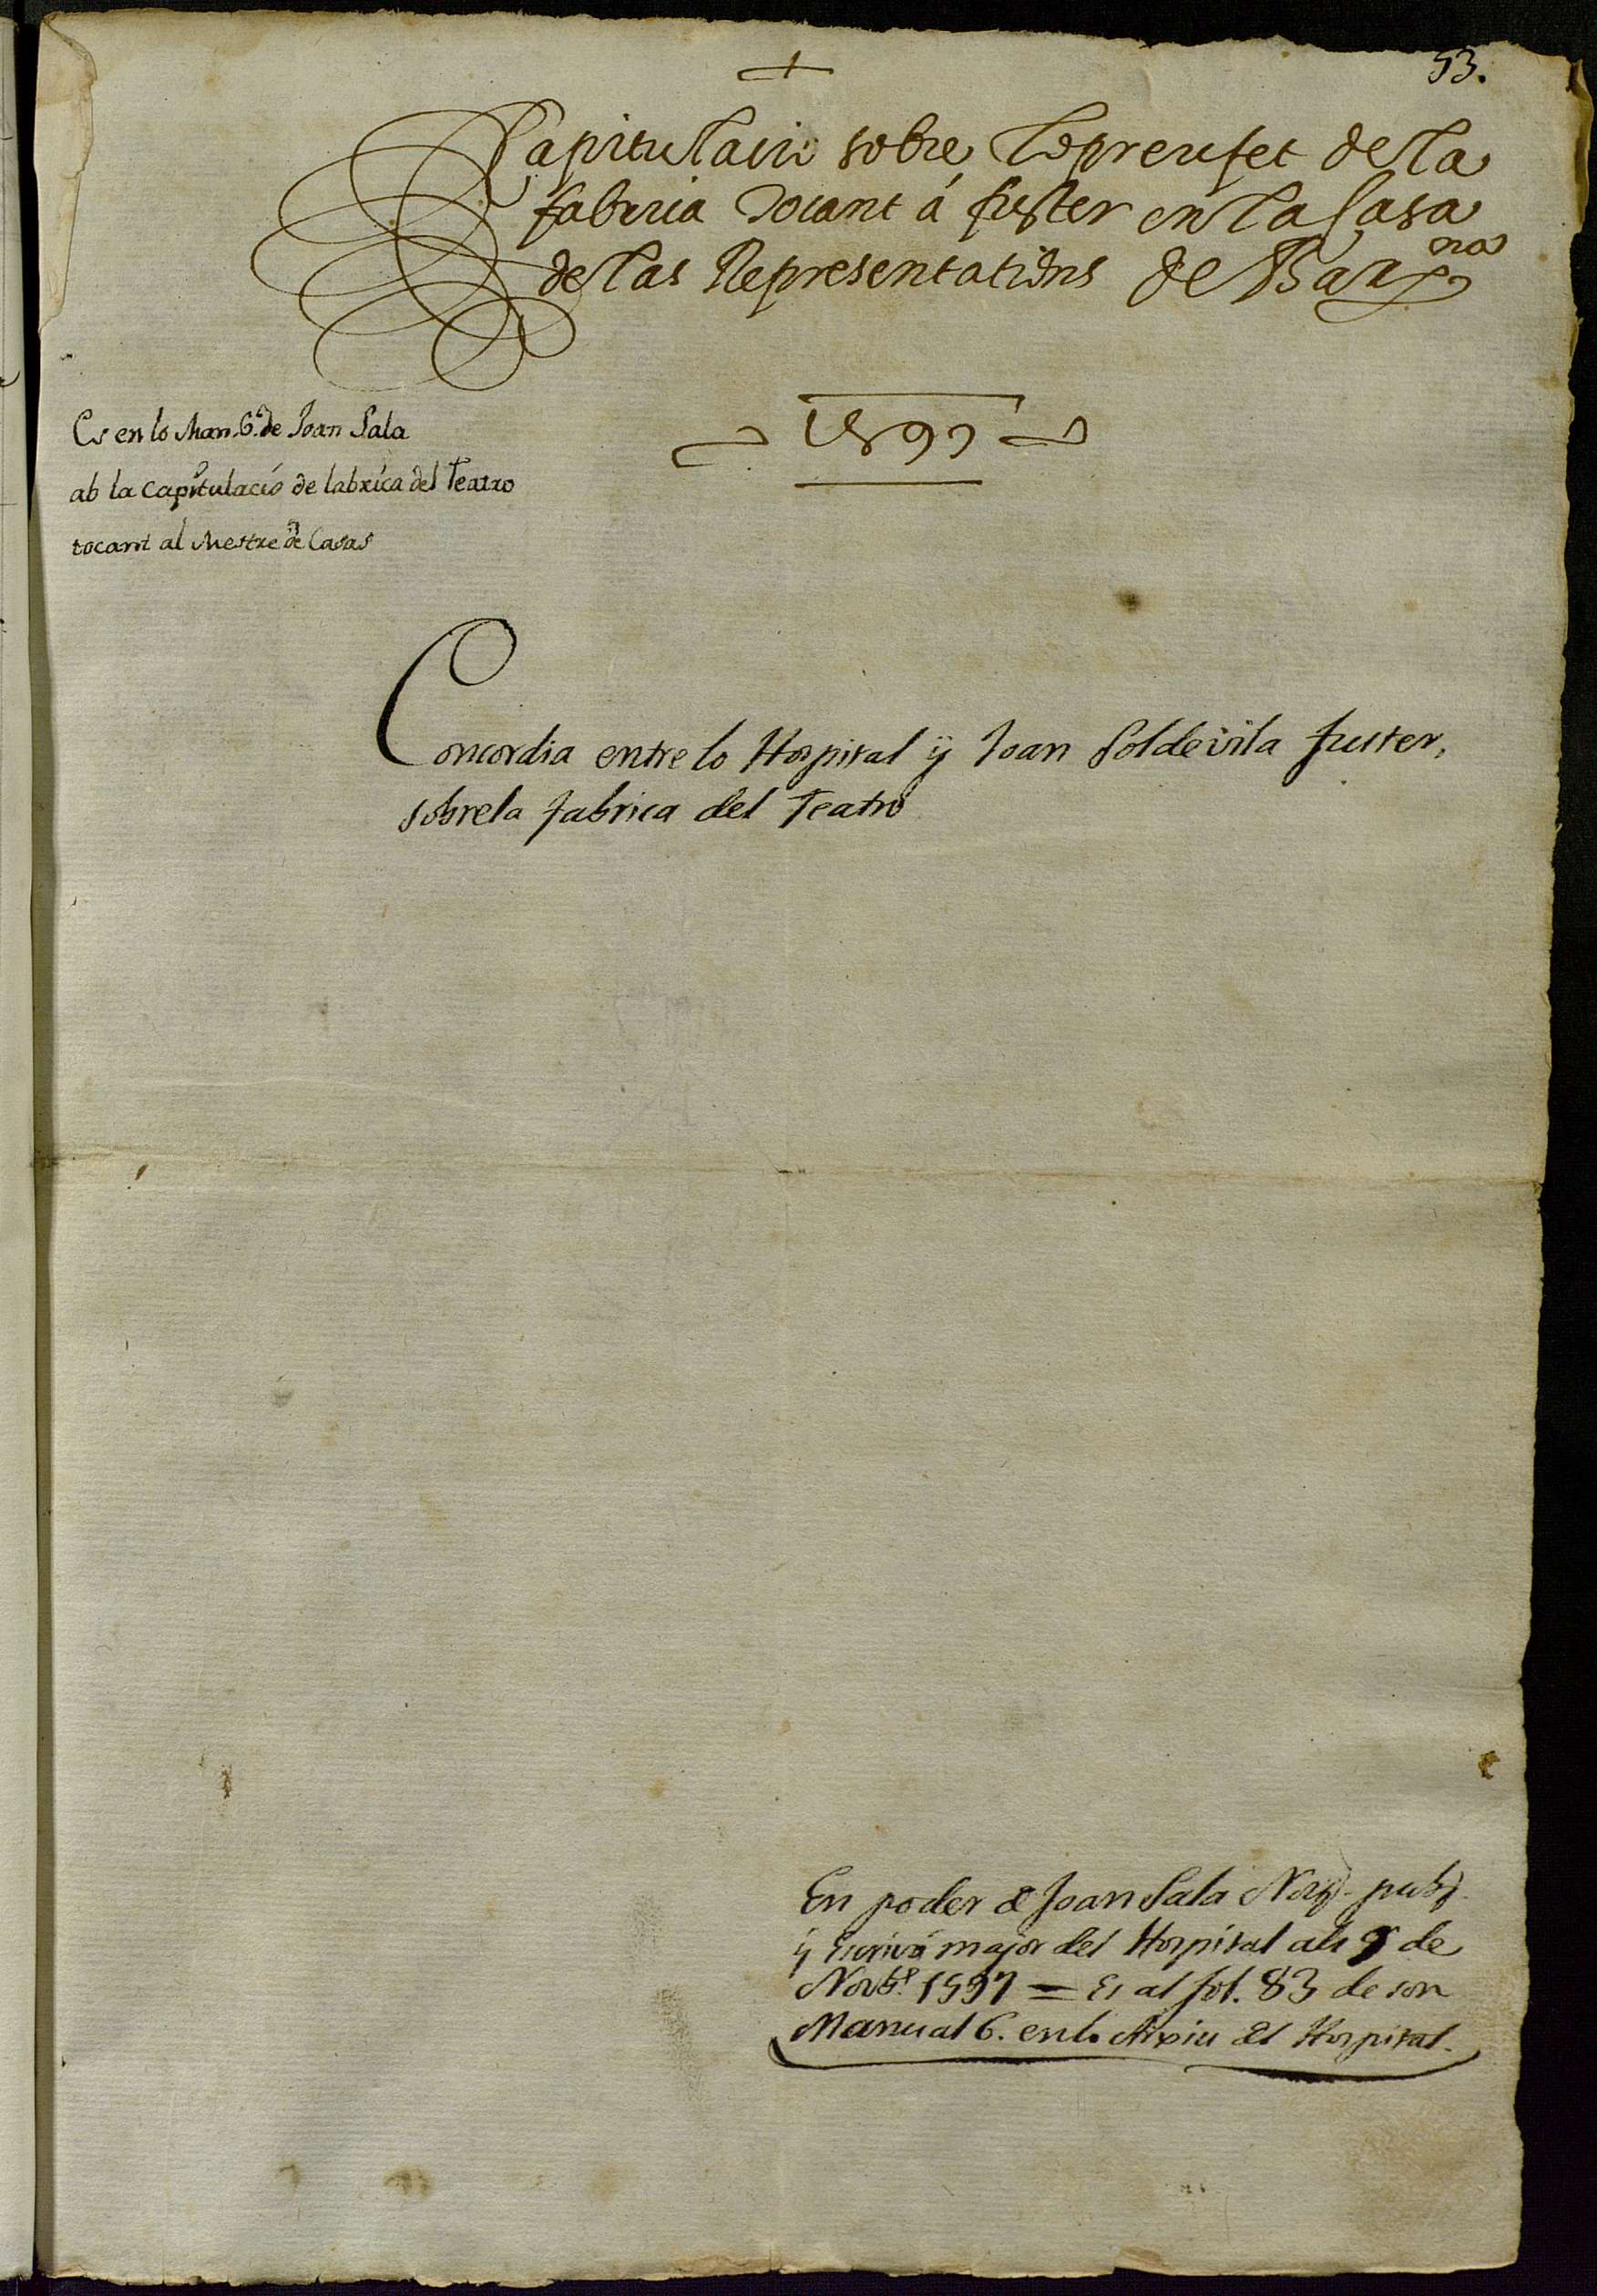 53.
Capitulacio sobre lo preufet de la
fabrica tocant á fuster en la Casa
de las Representations de Barna
1597
Es en lo Man. 6. de Joan Sala
ab la Capitulació de fabrica del Teatro
tocant al Mestre de Casas
Concordia entre lo Hospital ÿ Joan Soldevila fuster,
sobre la fabrica del Teatro
En poder de Joan Sala Noty. pub.
y Escrivá major del Hospital als de
Novbe. 1597 = Es al fol. 83 de son
Manual 6. en lo Arxiu del Hospital.